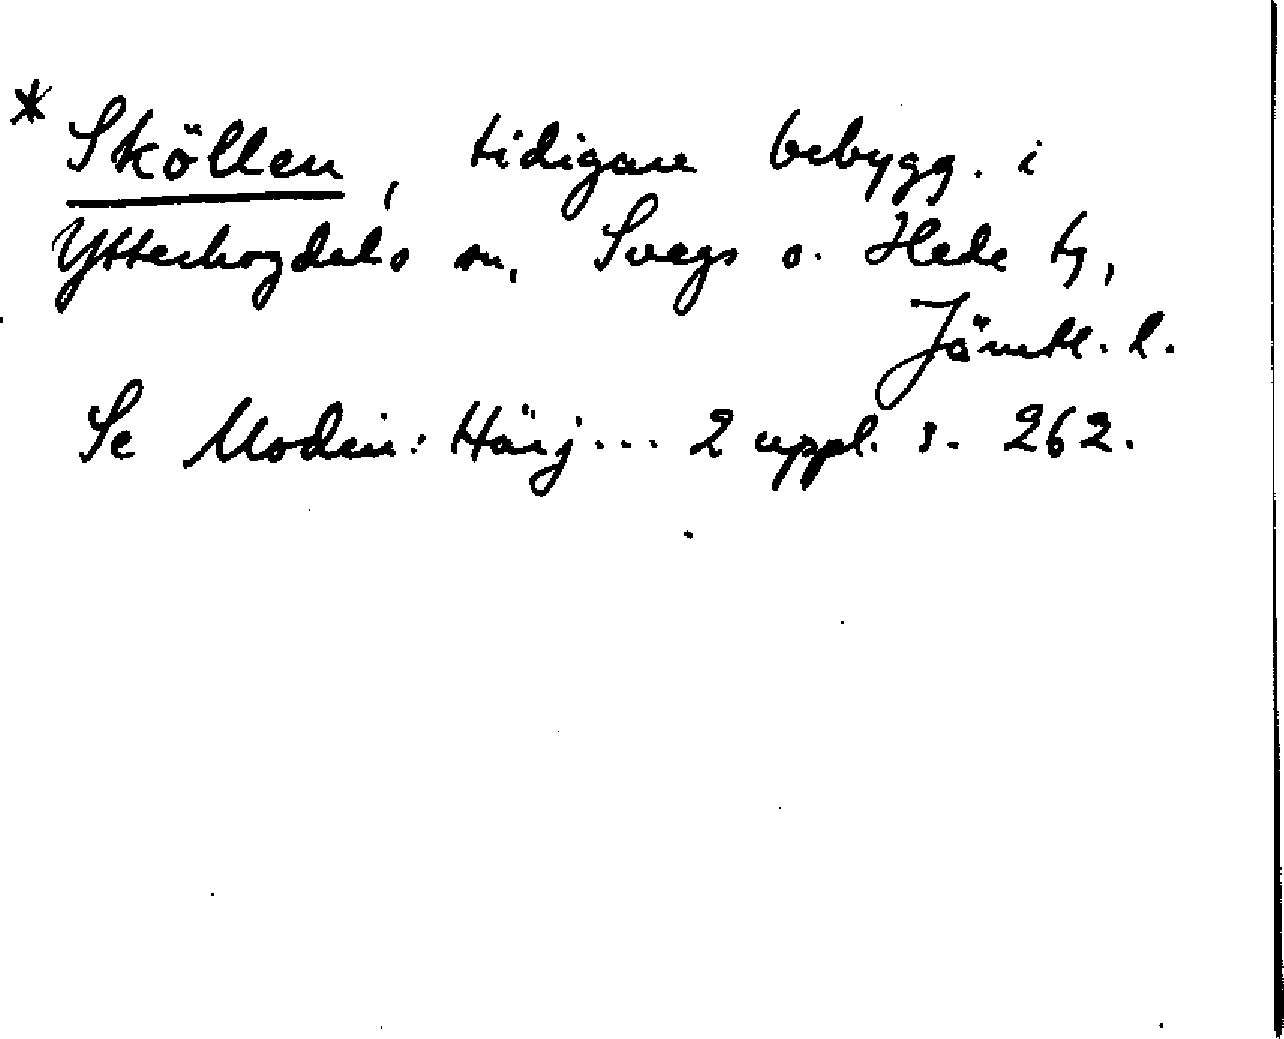 * Sköllen, tidigare bebygg. i
Ytterhogdals sn, Svegs o. Hede tg,
Jämtl. l.
Se Modin: Härj... 2 uppl. s. 262.